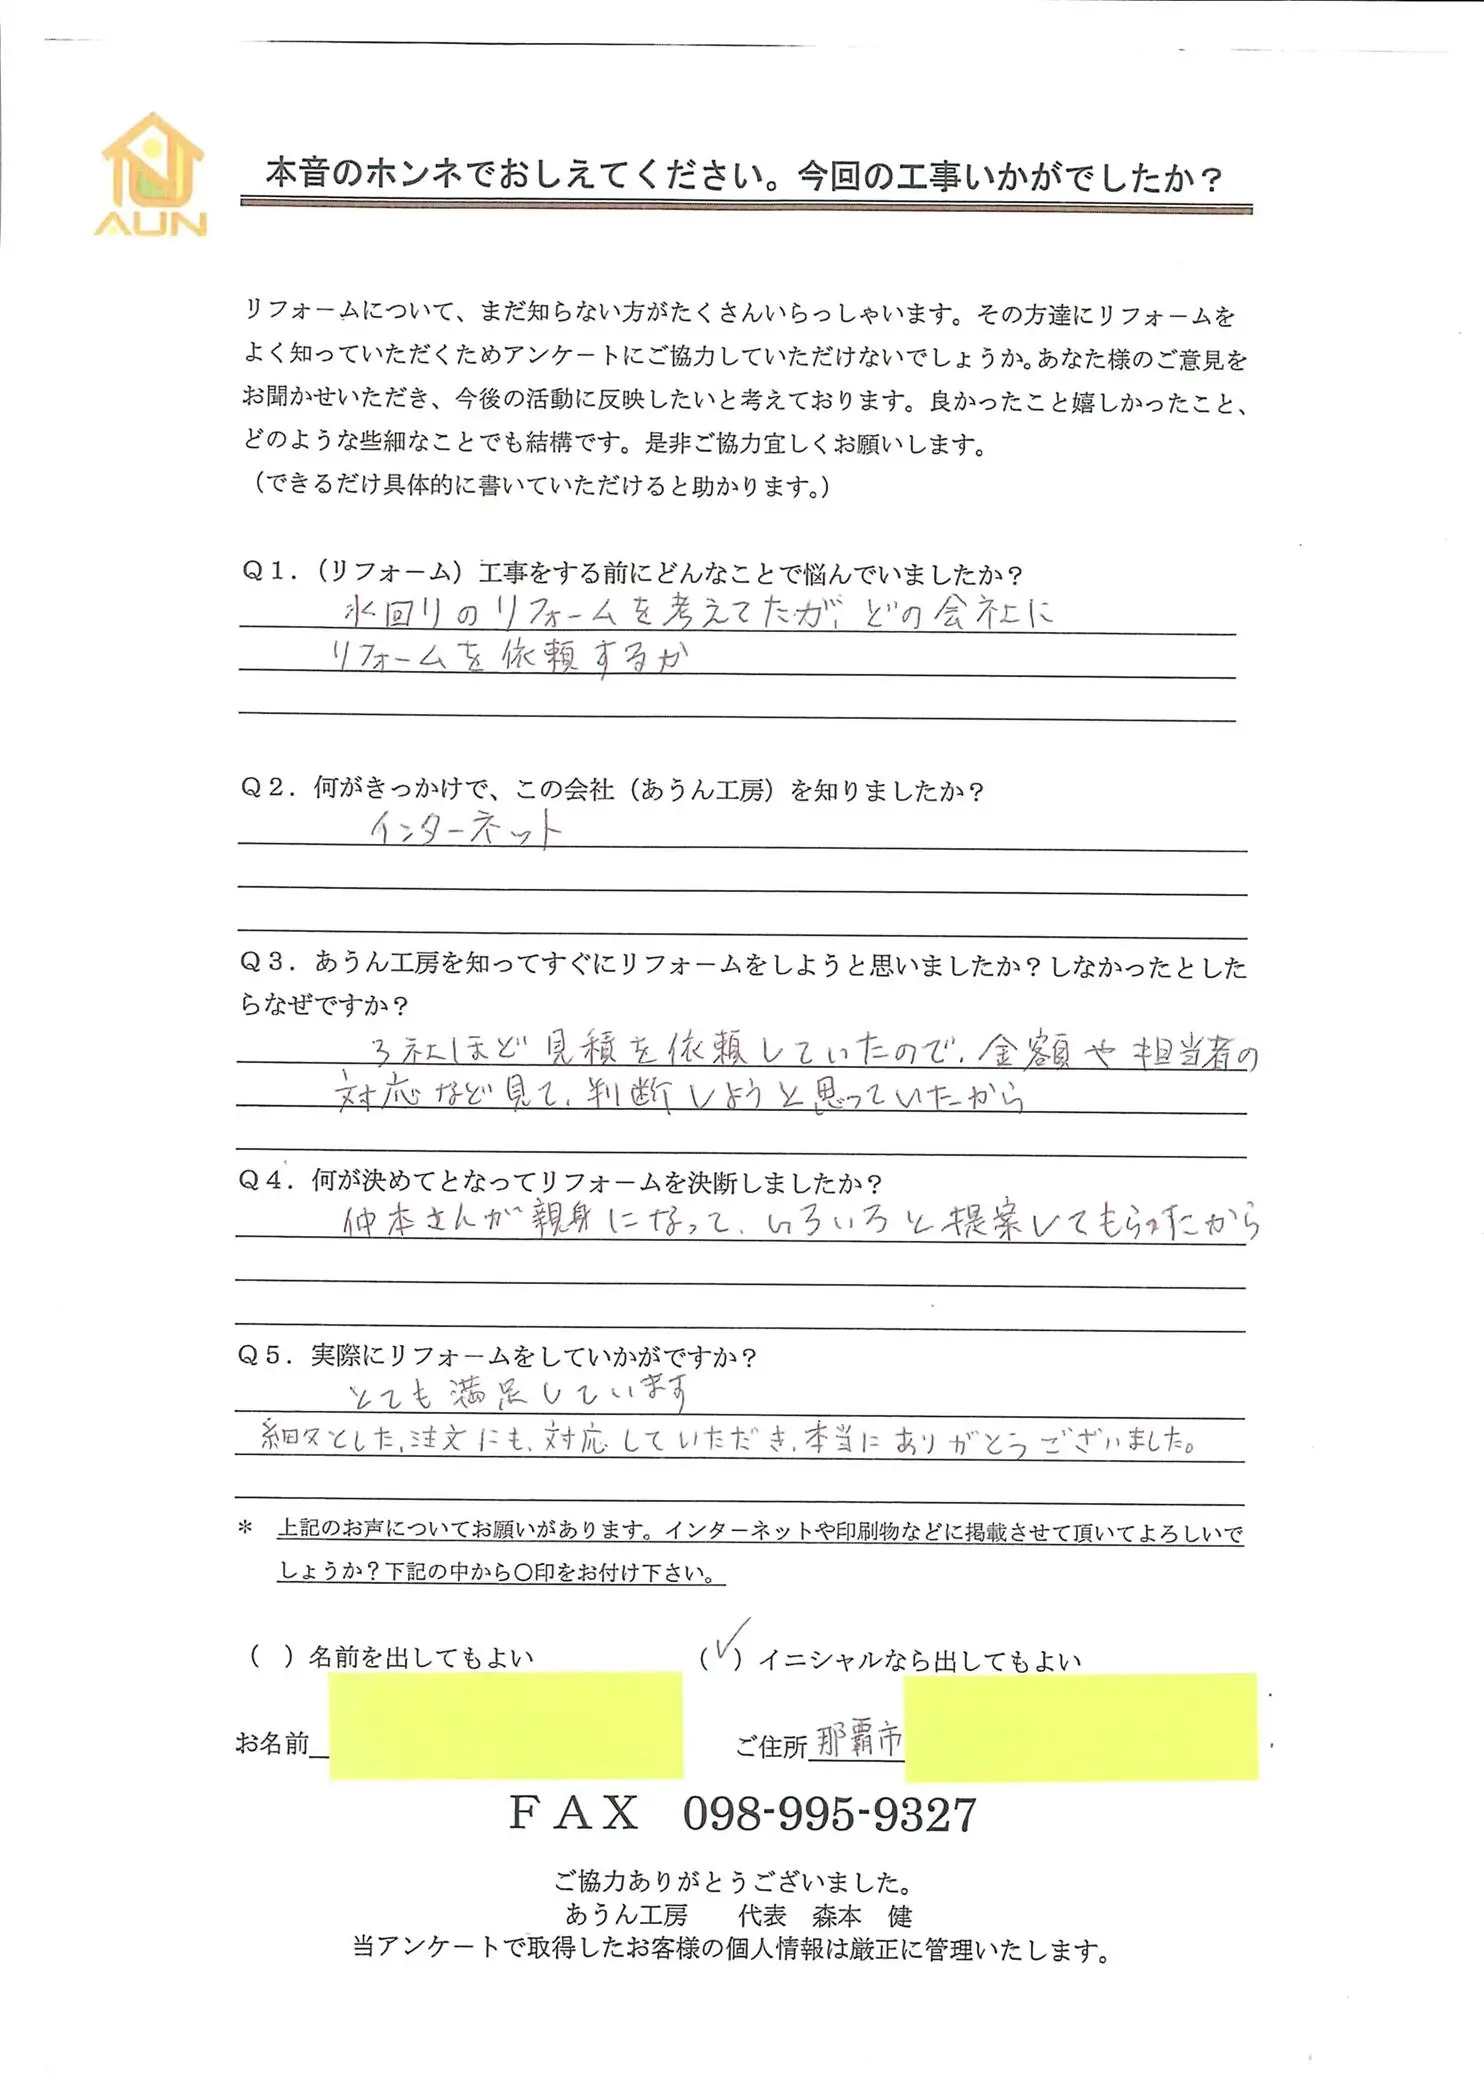 AUN
本音のホンネでおしえてください。今回の工事いかがでしたか？
リフォームについて、まだ知らない方がたくさんいらっしゃいます。その方達にリフォームを
よく知っていただくためアンケートにご協力していただけないでしょうか。あなた様のご意見を
お聞かせいただき、今後の活動に反映したいと考えております。良かったこと嬉しかったこと、
どのような些細なことでも結構です。是非ご協力宜しくお願いします。
（できるだけ具体的に書いていただけると助かります。）
Ｑ１．（リフォーム）工事をする前にどんなことで悩んでいましたか？
水回りのリフォームを考えてたが、どの会社に
リフォームを依頼するか
Ｑ２．何がきっかけで、この会社（あうん工房）を知りましたか？
インターネット
Ｑ３．あうん工房を知ってすぐにリフォームをしようと思いましたか？しなかったとした
らなぜですか？
3社ほど見積を依頼していたので、金額や担当者の
対応など見て、判断しようと思っていたから
Ｑ４．何が決めてとなってリフォームを決断しましたか？
仲本さんが親身になって、いろいろと提案してもらったから
Ｑ５．実際にリフォームをしていかがですか？
とても満足しています
細々とした、注文にも、対応していただき、本当にありがとうございました。
＊　上記のお声についてお願いがあります。インターネットや印刷物などに掲載させて頂いてよろしいで
しょうか？下記の中から〇印をお付け下さい。
（　）名前を出してもよい　（✓）イニシャルなら出してもよい
お名前　ご住所 那覇市
ＦＡＸ　098-995-9327
ご協力ありがとうございました。
あうん工房　代表　森本　健
当アンケートで取得したお客様の個人情報は厳正に管理いたします。